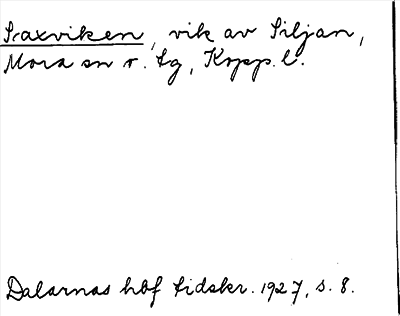 Saxviken, vik av Siljan,
Mora sn o. tg, Kopp. l.
Dalarnas hbf tidskr. 1927, s. 8.